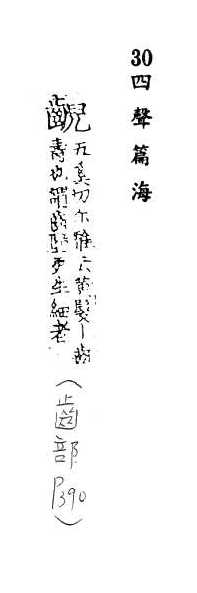 30四聲篇海
齯
五奚切尔雅云黃髮丨齒
壽也謂齒墮更生細者
(齒部
P390)